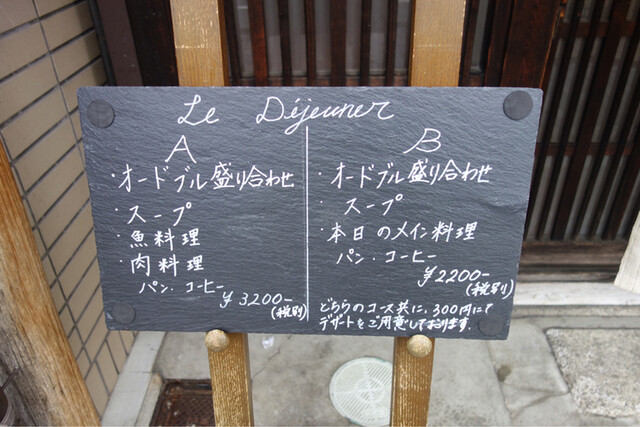 Le Déjeuner
A
・オードブル盛り合わせ
・スープ
・魚料理
・肉料理
パン・コーヒー
¥3200-
(税別)
B
・オードブル盛り合わせ
スープ
・本日のメイン料理
パン・コーヒー
¥2200-
(税別)
どちらのコース共に、300円にて
デザートをご用意しております.